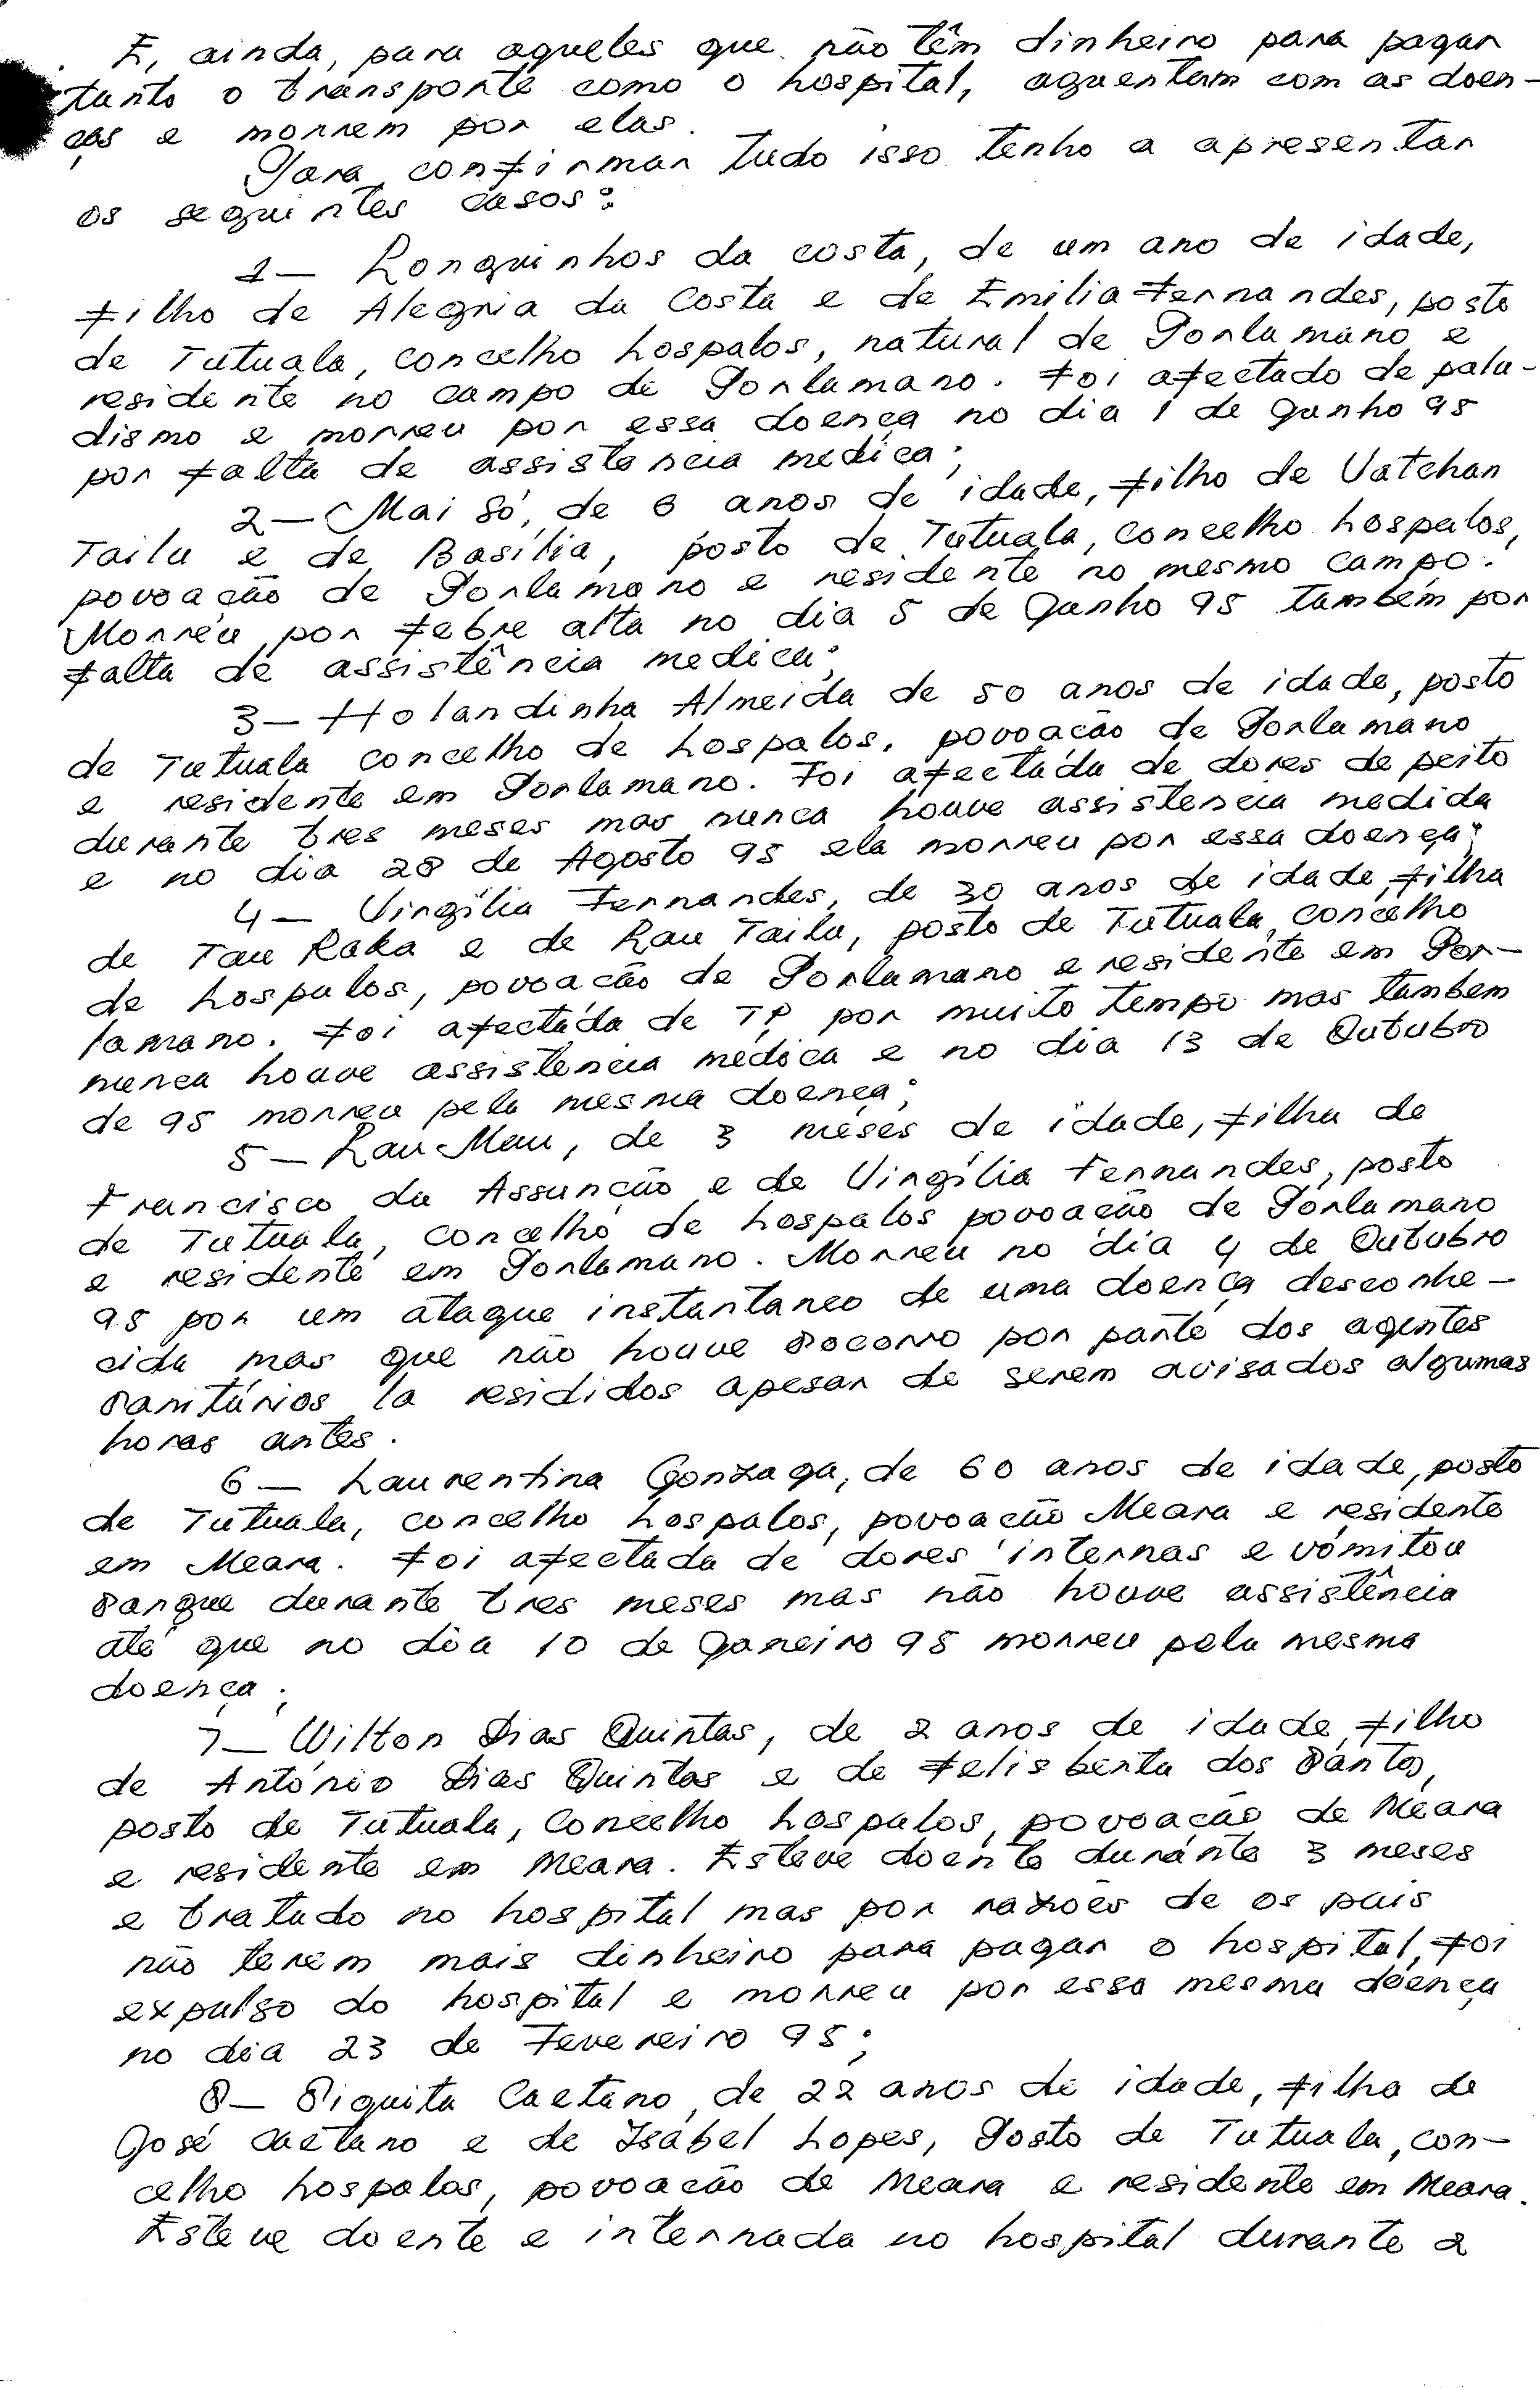 E, ainda, para aqueles que não têm dinheiro para pagar
tanto o transporte como o hospital, aguentam com as doen-
ças e morrem por elas.
Para confirmar tudo isso tenho a apresentar
os seguintes casos:
1 — Longuinhos da costa, de um ano de idade,
filho de Alegria da Costa e de Emilia Fernandes, posto
de Tutuala, concelho Lospalos, natural de Porlamano e
residente no campo de Porlamano. Foi afectado de palu-
dismo e morreu por essa doença no dia 1 de Junho 95
por falta de assistencia medica;
2 — Mai Só, de 6 anos de idade, filho de Vatchan
Tailu e de Basília, posto de Tutuala, concelho Lospalos,
povoação de Porlamano e residente no mesmo campo.
Morreu por febre alta no dia 5 de Junho 95 também por
falta de assistência medica;
3 — Holandinha Almeida de 50 anos de idade, posto
de Tutuala concelho de Lospalos, povoacão de Porlamano
e residente em Porlamano. Foi afectada de dores de peito
durante tres meses mas nunca houve assistencia medida
e no dia 28 de Agosto 95 ela morreu por essa doença;
4 — Virgília Fernandes, de 30 anos de idade, filha
de Tau Raka e de Lau Tailu, posto de Tutuala, concelho
de Lospalos, povoacão de Porlamano e residente em Por-
lamano. Foi afectada de TP por muito tempo mas tambem
nunca houve assistencia médica e no dia 13 de Outubro
de 95 morreu pela mesma doença;
5 — Lau Mau, de 3 meses de idade, filha de
Francisco da Assunção e de Virgília Fernandes, posto
de Tutuala, concelho de Lospalos povoacão de Porlamano
e residente em Porlamano. Morreu no dia 4 de Outubro
95 por um ataque instantaneo de uma doença desconhe-
cida mas que não houve socorro por parte dos agentes
sanitários la residos apesar de serem avisados algumas
horas antes.
6 — Laurentina Gonzaga, de 60 anos de idade, posto
de Tutuala, concelho Lospalos, povoacão Meara e residente
em Meara. Foi afectada de dores internas e vómitou
sangue durante tres meses mas não houve assistência
até que no dia 10 de Janeiro 95 morreu pela mesma
doença;
7 — Wilton Dias Quintas, de 2 anos de idade, filho
de António Dias Quintas e de Felisberta dos Santos,
posto de Tutuala, Concelho Lospalos, povoação de Meara
e residente em Meara. Esteve doente durante 3 meses
e tratado no hospital mas por razões de os pais
não terem mais dinheiro para pagar o hospital, foi
expulso do hospital e morreu por essa mesma doença
no dia 23 de Fevereiro 95;
8 — Siquita Caetano, de 22 anos de idade, filha de
José Caetano e de Isabel Lopes, Posto de Tutuala, con-
celho Lospalos, povoacão de Meara e residente em Meara.
Esteve doente e internada no hospital durante 2